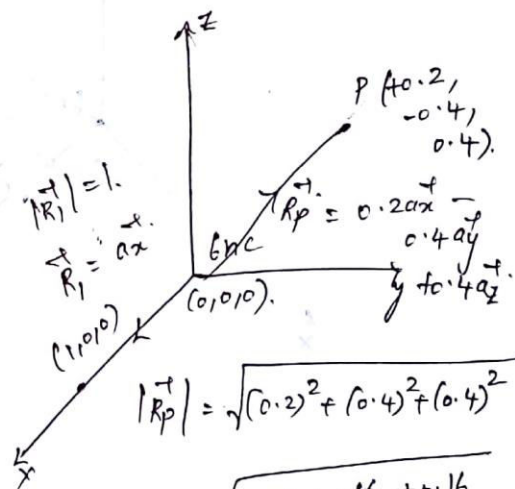 Z
P (+0.2,
-0.4,
0.4).
|R₁| = 1.
R₁ = ax.
Rp = 0.2ax -
0.4ay
+0.4az.
6nc
(0,0,0).
y
(1,0,0)
x
|Rp| = √(0.2)² + (0.4)² + (0.4)²